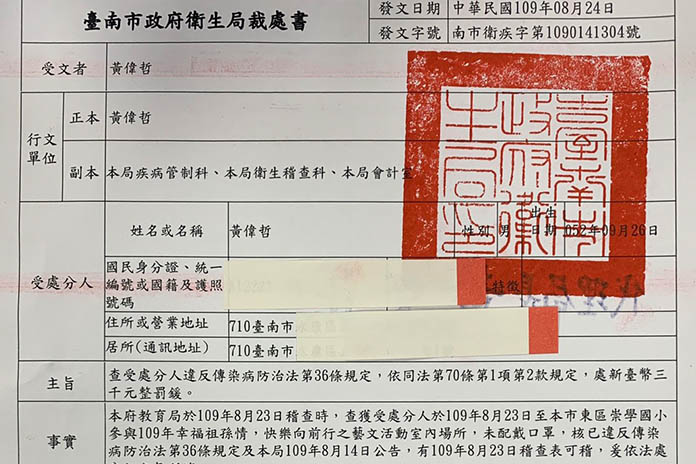 臺南市政府衛生局裁處書
發文日期 中華民國109年08月24日
發文字號 南市衛疾字第1090141304號
受文者 黃偉哲
行文單位 正本 黃偉哲
副本 本局疾病管制科、本局衛生稽查科、本局會計室
臺南市政府衛生局印
受處分人 姓名或名稱 黃偉哲 性別 男 出生日期 052年09月26日
國民身分證、統一
編號或國籍及護照
號碼
特徵
住所或營業地址 710臺南市
居所(通訊地址) 710臺南市
主旨 查受處分人違反傳染病防治法第36條規定，依同法第70條第1項第2款規定，處新臺幣三
千元整罰鍰。
事實 本府教育局於109年8月23日稽查時，查獲受處分人於109年8月23日至本市東區崇學國小
參與109年幸福祖孫情，快樂向前行之藝文活動室內場所，未配戴口罩，核已違反傳染
病防治法第36條規定及本局109年8月14日公告，有109年8月23日稽查表可稽，爰依法處